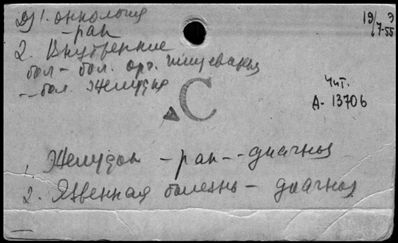 1. Онкология
19/э
7-55
- рак
2. Внутренние
бол - бол. орг. пищеварен
- бол. желудка
Чит.
А-13706
С
1. Желудок - рак - диагноз
2. Язвенная болезнь - диагноз